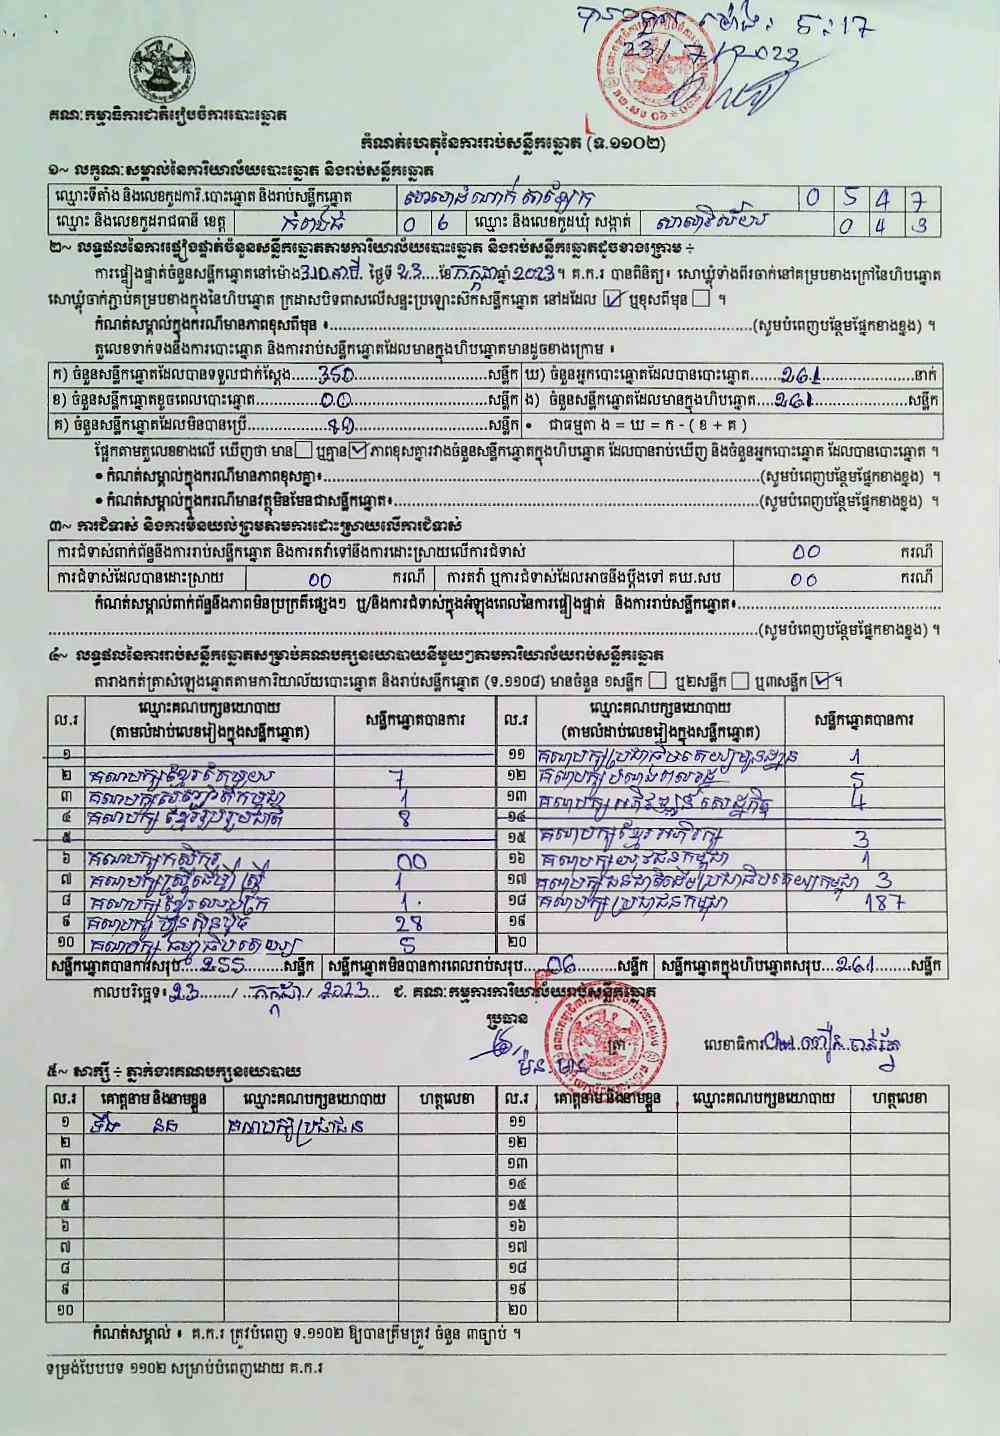 ម៉ោង: 5:17
23/7/2023
គណៈកម្មាធិការជាតិរៀបចំការបោះឆ្នោត
កំណត់ហេតុនៃការរាប់សន្លឹកឆ្នោត (ទ.១១០២)
១~ លក្ខណៈសម្គាល់នៃការិយាល័យបោះឆ្នោត និងរាប់សន្លឹកឆ្នោត
ឈ្មោះទីតាំង និងលេខកូដការិ.បោះឆ្នោត និងរាប់សន្លឹកឆ្នោត សាលាដំណាក់ 0 5 4 7
ឈ្មោះ និងលេខកូដរាជធានី ខេត្ត កំពង់ធំ 0 6 ឈ្មោះ និងលេខកូដឃុំ សង្កាត់ សាលាវិស័យ 0 4 3
២~ លទ្ធផលនៃការផ្ទៀងផ្ទាត់ចំនួនសន្លឹកឆ្នោតតាមការិយាល័យបោះឆ្នោត និងរាប់សន្លឹកឆ្នោតដូចខាងក្រោម ÷
ការផ្ទៀងផ្ទាត់ចំនួនសន្លឹកឆ្នោតនៅម៉ោង 3.10 នាទី. ថ្ងៃទី 23 ខែ កក្កដា ឆ្នាំ 2023 ។ គ.ក.រ បានពិនិត្យ៖ សោឃ្លុំទាំងពីរចាក់នៅគម្របខាងក្រៅនៃហិបឆ្នោត
សោឃ្លុំចាក់ភ្ជាប់គម្របខាងក្នុងនៃហិបឆ្នោត ក្រដាសបិទពាសលើសន្ទះប្រឡោះស៊កសន្លឹកឆ្នោត នៅដដែល ☑ ឬខុសពីមុន ☐ ។
កំណត់សម្គាល់ក្នុងករណីមានភាពខុសពីមុន ៖ (សូមបំពេញបន្ថែមផ្នែកខាងខ្នង) ។
តួលេខទាក់ទងនឹងការបោះឆ្នោត និងការរាប់សន្លឹកឆ្នោតដែលមានក្នុងហិបឆ្នោតមានដូចខាងក្រោម ៖
ក) ចំនួនសន្លឹកឆ្នោតដែលបានទទួលជាក់ស្តែង 350 សន្លឹក ឃ) ចំនួនអ្នកបោះឆ្នោតដែលបានបោះឆ្នោត 261 នាក់
ខ) ចំនួនសន្លឹកឆ្នោតខូចពេលបោះឆ្នោត 00 សន្លឹក ង) ចំនួនសន្លឹកឆ្នោតដែលមានក្នុងហិបឆ្នោត 261 សន្លឹក
គ) ចំនួនសន្លឹកឆ្នោតដែលមិនបានប្រើ 89 សន្លឹក • ជាធម្មតា ង = ឃ = ក - ( ខ + គ )
ផ្អែកតាមតួលេខខាងលើ ឃើញថា មាន ☐ ឬគ្មាន ☑ ភាពខុសគ្នារវាងចំនួនសន្លឹកឆ្នោតក្នុងហិបឆ្នោត ដែលបានរាប់ឃើញ និងចំនួនអ្នកបោះឆ្នោត ដែលបានបោះឆ្នោត ។
• កំណត់សម្គាល់ក្នុងករណីមានភាពខុសគ្នា៖ (សូមបំពេញបន្ថែមផ្នែកខាងខ្នង) ។
• កំណត់សម្គាល់ក្នុងករណីមានវត្ថុមិនមែនជាសន្លឹកឆ្នោត៖ (សូមបំពេញបន្ថែមផ្នែកខាងខ្នង) ។
៣~ ការជំទាស់ និងការមិនយល់ព្រមតាមការដោះស្រាយលើការជំទាស់
ការជំទាស់ពាក់ព័ន្ធនឹងការរាប់សន្លឹកឆ្នោត និងការតវ៉ាទៅនឹងការដោះស្រាយលើការជំទាស់ 00 ករណី
ការជំទាស់ដែលបានដោះស្រាយ 00 ករណី ការតវ៉ា ឬការជំទាស់ដែលអាចនឹងប្តឹងទៅ គឃ.សប 00 ករណី
កំណត់សម្គាល់ពាក់ព័ន្ធនឹងភាពមិនប្រក្រតីផ្សេងៗ ឬ/និងការជំទាស់ក្នុងអំឡុងពេលនៃការផ្ទៀងផ្ទាត់ និងការរាប់សន្លឹកឆ្នោត៖
(សូមបំពេញបន្ថែមផ្នែកខាងខ្នង) ។
៤~ លទ្ធផលនៃការរាប់សន្លឹកឆ្នោតសម្រាប់គណបក្សនយោបាយនីមួយៗតាមការិយាល័យរាប់សន្លឹកឆ្នោត
តារាងកត់ត្រាសំឡេងឆ្នោតតាមការិយាល័យបោះឆ្នោត និងរាប់សន្លឹកឆ្នោត (ទ.១១០៨) មានចំនួន ១សន្លឹក ☐ ឬ២សន្លឹក ☐ ឬ៣សន្លឹក ☑ ។
ល.រ ឈ្មោះគណបក្សនយោបាយ (តាមលំដាប់លេខរៀងក្នុងសន្លឹកឆ្នោត) សន្លឹកឆ្នោតបានការ ល.រ ឈ្មោះគណបក្សនយោបាយ (តាមលំដាប់លេខរៀងក្នុងសន្លឹកឆ្នោត) សន្លឹកឆ្នោតបានការ
១ ១១ គណបក្សប្រជាធិបតេយ្យមូលដ្ឋាន 1
២ គណបក្សខ្មែរតែមួយ 7 ១២ គណបក្ស 5
៣ គណបក្សសញ្ជាតិកម្ពុជា 1 ១៣ គណបក្សអភិវឌ្ឍន៍សេដ្ឋកិច្ច 4
៤ គណបក្សខ្មែររួបរួមជាតិ 8 ១៤
៥ ១៥ គណបក្សខ្មែរអភិរក្ស 3
៦ គណបក្សកសិករ 00 ១៦ គណបក្សយុវជនកម្ពុជា 1
៧ គណបក្សស្ត្រីដើម្បីស្ត្រី 1 ១៧ គណបក្សជនជាតិដើមប្រជាធិបតេយ្យកម្ពុជា 3
៨ គណបក្សខ្មែរឈប់ក្រ 1 ១៨ គណបក្សប្រជាជនកម្ពុជា 187
៩ គណបក្សហ្វ៊ុនស៊ិនប៉ិច 28 ១៩
១០ គណបក្សធម្មាធិបតេយ្យ 5 ២០
សន្លឹកឆ្នោតបានការសរុប 255 សន្លឹក សន្លឹកឆ្នោតមិនបានការពេលរាប់សរុប 06 សន្លឹក សន្លឹកឆ្នោតក្នុងហិបឆ្នោតសរុប 261 សន្លឹក
កាលបរិច្ឆេទ៖ 23 / កក្កដា / 2023 ជ. គណៈកម្មការការិយាល័យរាប់សន្លឹកឆ្នោត
ប្រធាន
ត្រា
លេខាធិការ
ម៉ន មាន
៥~ សាក្សី ÷ ភ្នាក់ងារគណបក្សនយោបាយ
ល.រ គោត្តនាម និងនាមខ្លួន ឈ្មោះគណបក្សនយោបាយ ហត្ថលេខា ល.រ គោត្តនាម និងនាមខ្លួន ឈ្មោះគណបក្សនយោបាយ ហត្ថលេខា
១ ទឹង នន គណបក្សប្រជាជន ១១
២ ១២
៣ ១៣
៤ ១៤
៥ ១៥
៦ ១៦
៧ ១៧
៨ ១៨
៩ ១៩
១០ ២០
កំណត់សម្គាល់ ៖ គ.ក.រ ត្រូវបំពេញ ទ.១១០២ ឱ្យបានត្រឹមត្រូវ ចំនួន ៣ច្បាប់ ។
ទម្រង់បែបបទ ១១០២ សម្រាប់បំពេញដោយ គ.ក.រ